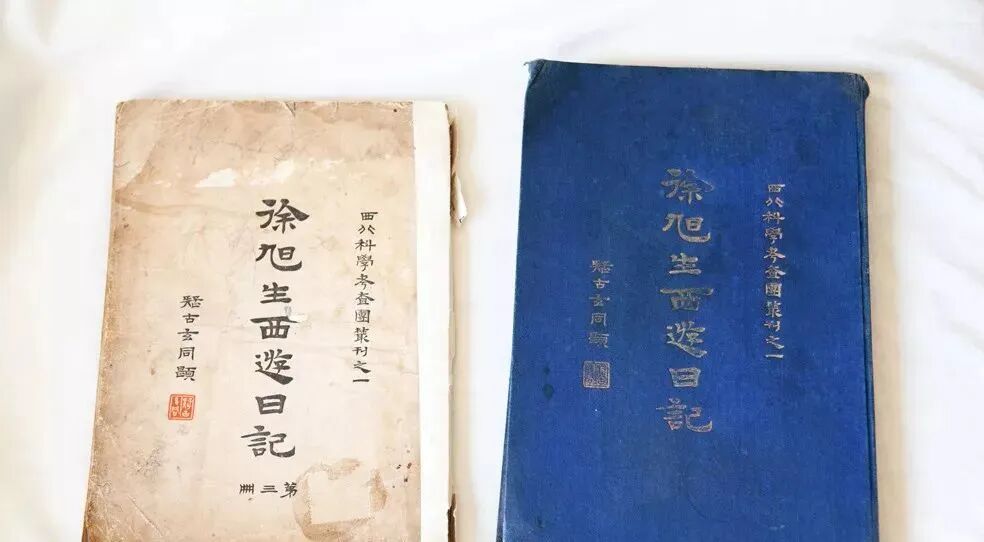 西北科學考查團叢刊之一
徐旭生西遊日記
第三冊
疑古玄同題
西北科學考查團叢刊之一
徐旭生西遊日記
疑古玄同題